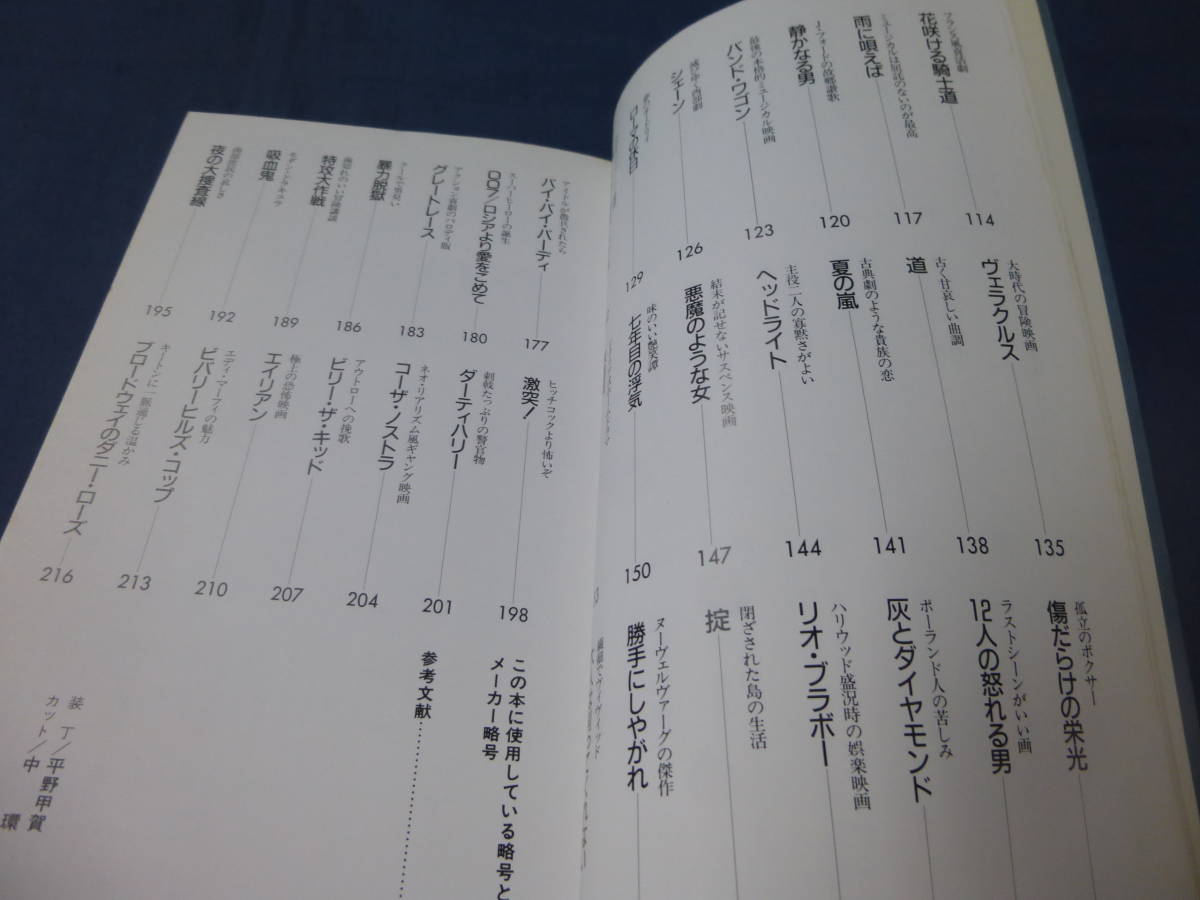 フランス風音活劇
花咲ける騎士道
114
ミュージカルは屈託のないのが最高
雨に唄えば
117
J・フォードの故郷讃歌
静かなる男
120
最後の本格的ミュージカル映画
バンド・ワゴン
123
滅びゆく西部劇
シェーン
126
ローマの休日
129
大時代の冒険映画
ヴェラクルス
135
古く甘哀しい曲調
道
138
古典劇のような貴族の恋
夏の嵐
141
主役二人の寡黙さがよい
ヘッドライト
144
結末が記せないサスペンス映画
悪魔のような女
147
味のいい艶笑譚
七年目の浮気
150
孤立のボクサー
傷だらけの栄光
ラストシーンがいい画
12人の怒れる男
ポーランド人の苦しみ
灰とダイヤモンド
ハリウッド盛況時の娯楽映画
リオ・ブラボー
閉ざされた島の生活
掟
ヌーヴェルヴァーグの傑作
勝手にしやがれ
繊細でヴィヴィッド
アイドルが徴兵されたら
バイ・バイ・バーディ
177
スーパーヒーローの誕生
007/ロシアより愛をこめて
180
アクション喜劇のパロディ版
グレートレース
183
クールで男臭い
暴力脱獄
186
歯切れのいい冒険講談
特攻大作戦
189
モダン・ドラキュラ
吸血鬼
192
南部庶民の貧しさ
夜の大捜査線
195
ヒッチコックより怖いぞ
激突!
198
刺戟たっぷりの警官物
ダーティハリー
201
ネオ・リアリズム風ギャング映画
コーザ・ノストラ
204
アウトローへの挽歌
ビリー・ザ・キッド
207
極上の恐怖映画
エイリアン
210
エディ・マーフィの魅力
ビバリーヒルズ・コップ
213
キートンに一脈通じる温かみ
ブロードウェイのダニー・ローズ
216
この本に使用している略号と
メーカー略号
参考文献…………
装 丁/平野甲賀
カット/中 環